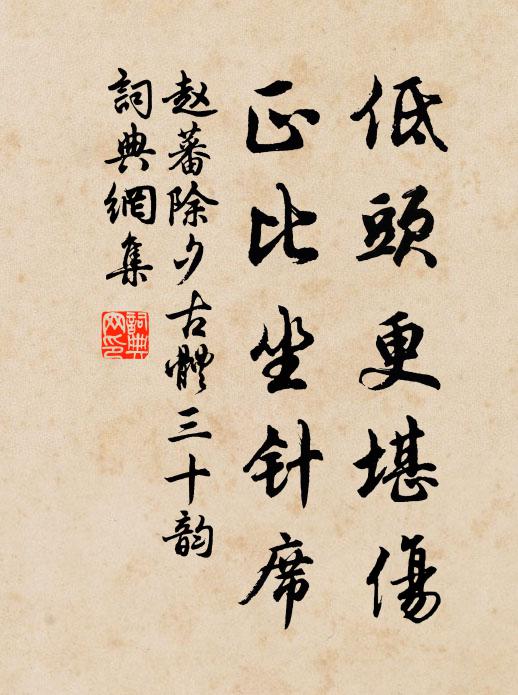 低頭更堪傷
正比坐针席
赵蕃除夕古體三十韵
詞典網集
詞典
网印